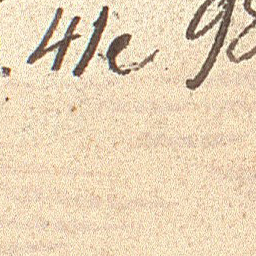 . 41e 98